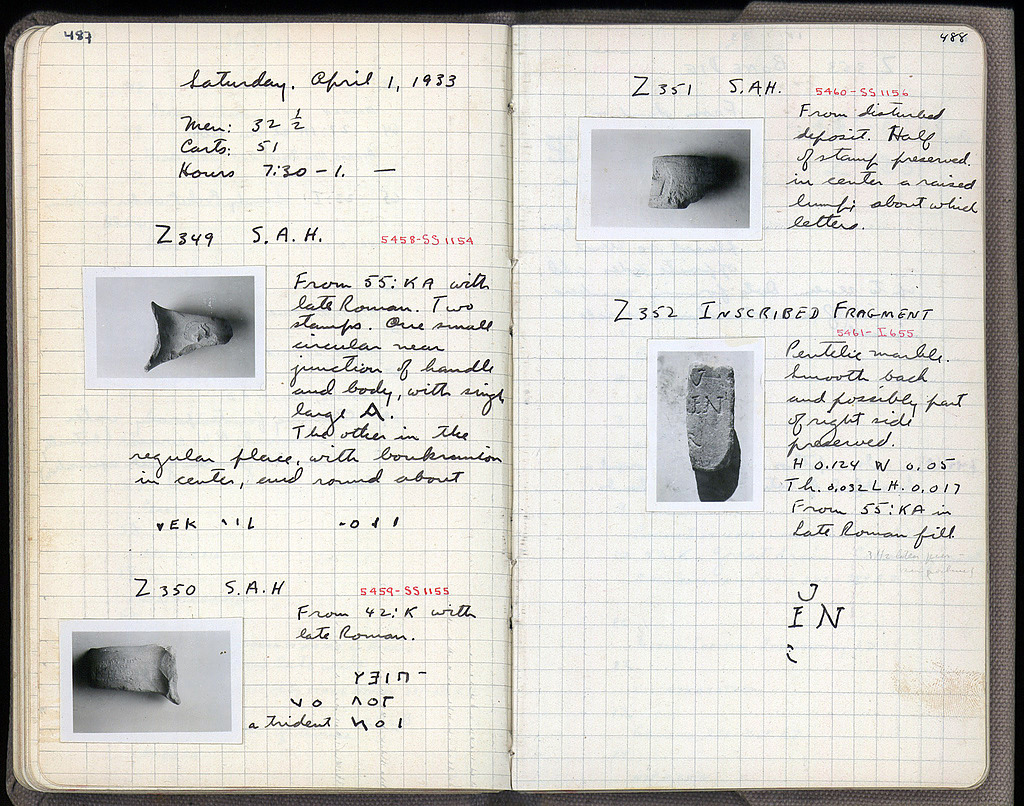 487
Saturday, April 1, 1933
Men: 32 ½
Carts: 51
Hours 7:30 – 1. —
Z 349 S.A.H. 5458-SS 1154
From 55:KA with
late Roman. Two
stamps. One small
circular near
junction of handle
and body, with single
large A.
The other in the
regular place, with boukranion
in center, and round about
Z 350 S.A.H 5459-SS 1155
From 42:K with
late Roman.
a trident
488
Z 351 S.A.H. 5460-SS 1156
From disturbed
deposit. Half
of stamp preserved.
in center a raised
lump; about which
letters.
Z 352 INSCRIBED FRAGMENT
5461-I 655
Pentelic marble.
Smooth back
and possibly part
of right side
preserved.
H 0.124 W 0.05
Th. 0.032 L H. 0.017
From 55:KA in
Late Roman fill.
EN